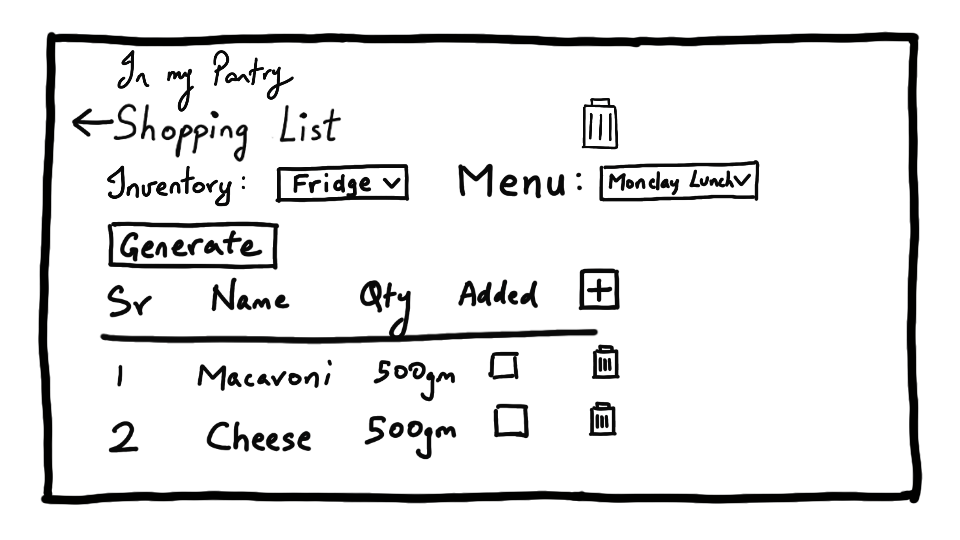 In my Pantry
Shopping List
Inventory: Fridge Menu: Monday Lunch
Generate
Sr Name Qty Added
1 Macaroni 500gm
2 Cheese 500gm